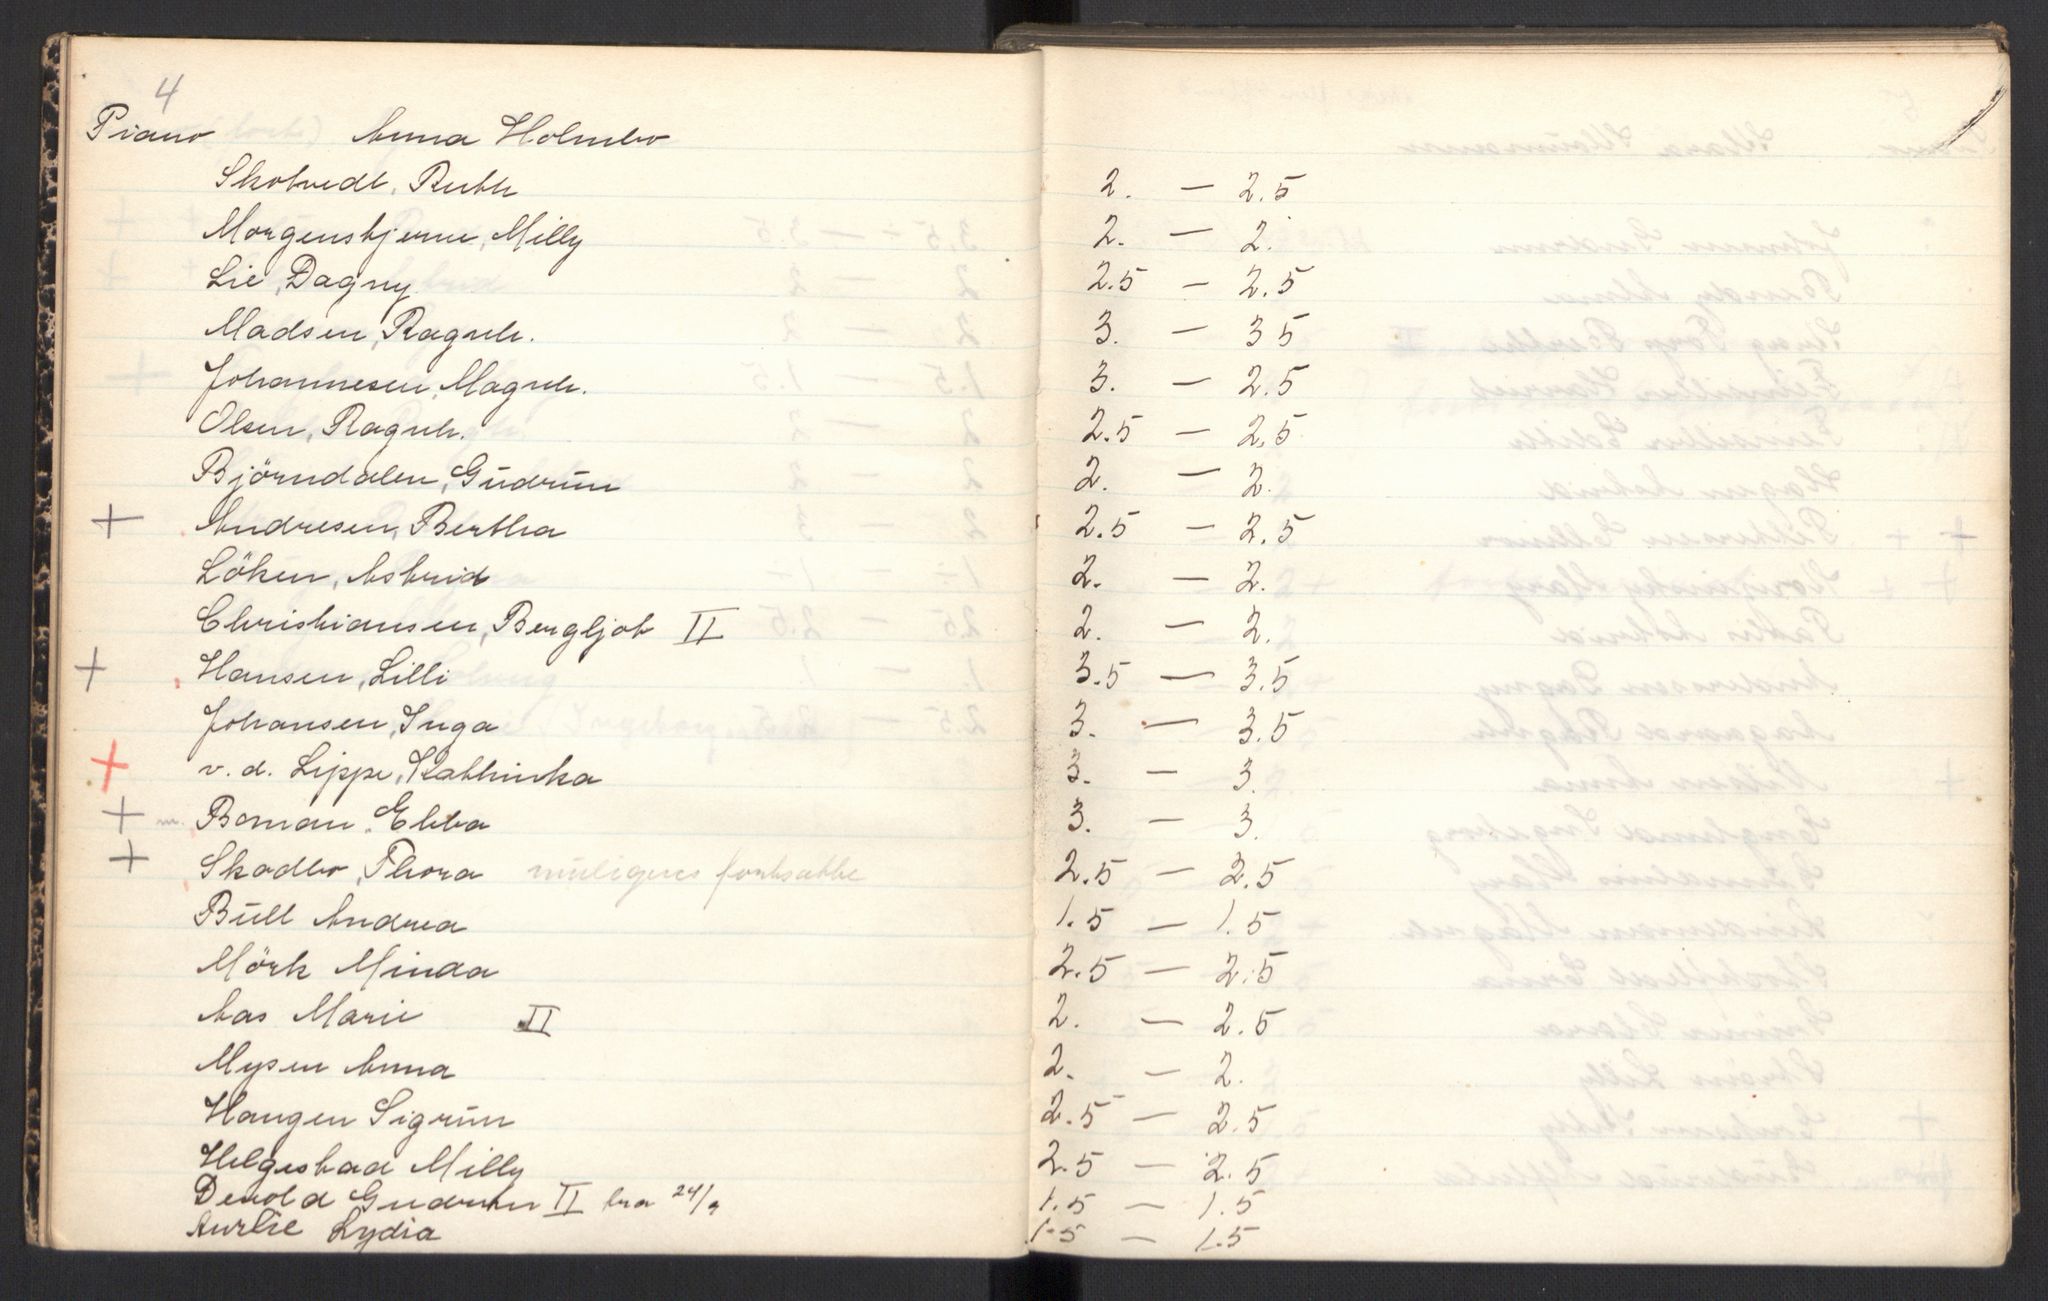 4
Piano Anna Holmbo
Skotvedt, Ruth 2. — 2.5
Morgenstjerne, Milly 2. — 2.
Lie, Dagny 2.5 — 2.5
Madsen, Ragnh. 3. — 35
Johannesen, Magnh. 3. — 2.5
Olsen, Ragnh. 2.5 — 2.5
Björndalen, Gudrun 2. — 2.
+ Andresen, Bertha 2.5 — 2.5
Löken, Astrid 2. — 2.
Christiansen, Bergljot II 2. — 2.
+ Hansen, Lilli 3.5 — 3.5
Johansen, Inga 3. — 3.5
+ v. d. Lippe, Kathinka 3. — 3.
+ m. Boman, Ebba 3. — 3.
+ Skadbo, Thora muligens fortsætte 2.5 — 2.5
Bull Andrea 1.5 — 1.5
Mörk Minda 2.5 — 2.5
Aas Marie II 2. — 2.5
Mysen Anna 2. — 2.
Haugen Sigrun 2.5 — 2.5
Helgestad Milly 2.5 — 2.5
Devold Gudrun II fra 24/9 1.5 — 1.5
Lydia 1.5 — 1.5